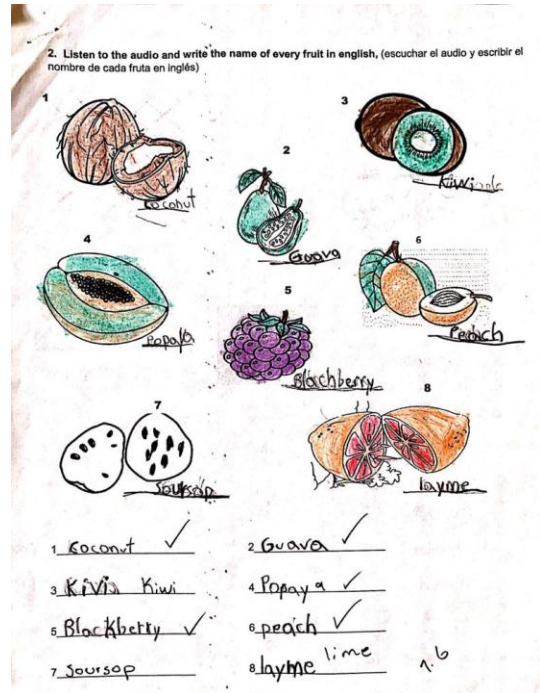 2. Listen to the audio and write the name of every fruit in english, (escuchar el audio y escribir el
nombre de cada fruta en inglés)
1
3
2
Coconut
Kiwi
Guava
4
6
5
Papaya
Peach
Blachberry
8
7
Soursop
layme
1 Coconut ✓
2 Guava ✓
3 Kivi Kiwi
4 Papaya ✓
5 Blackberry ✓
6 peach ✓
7 Soursop
8 layme lime